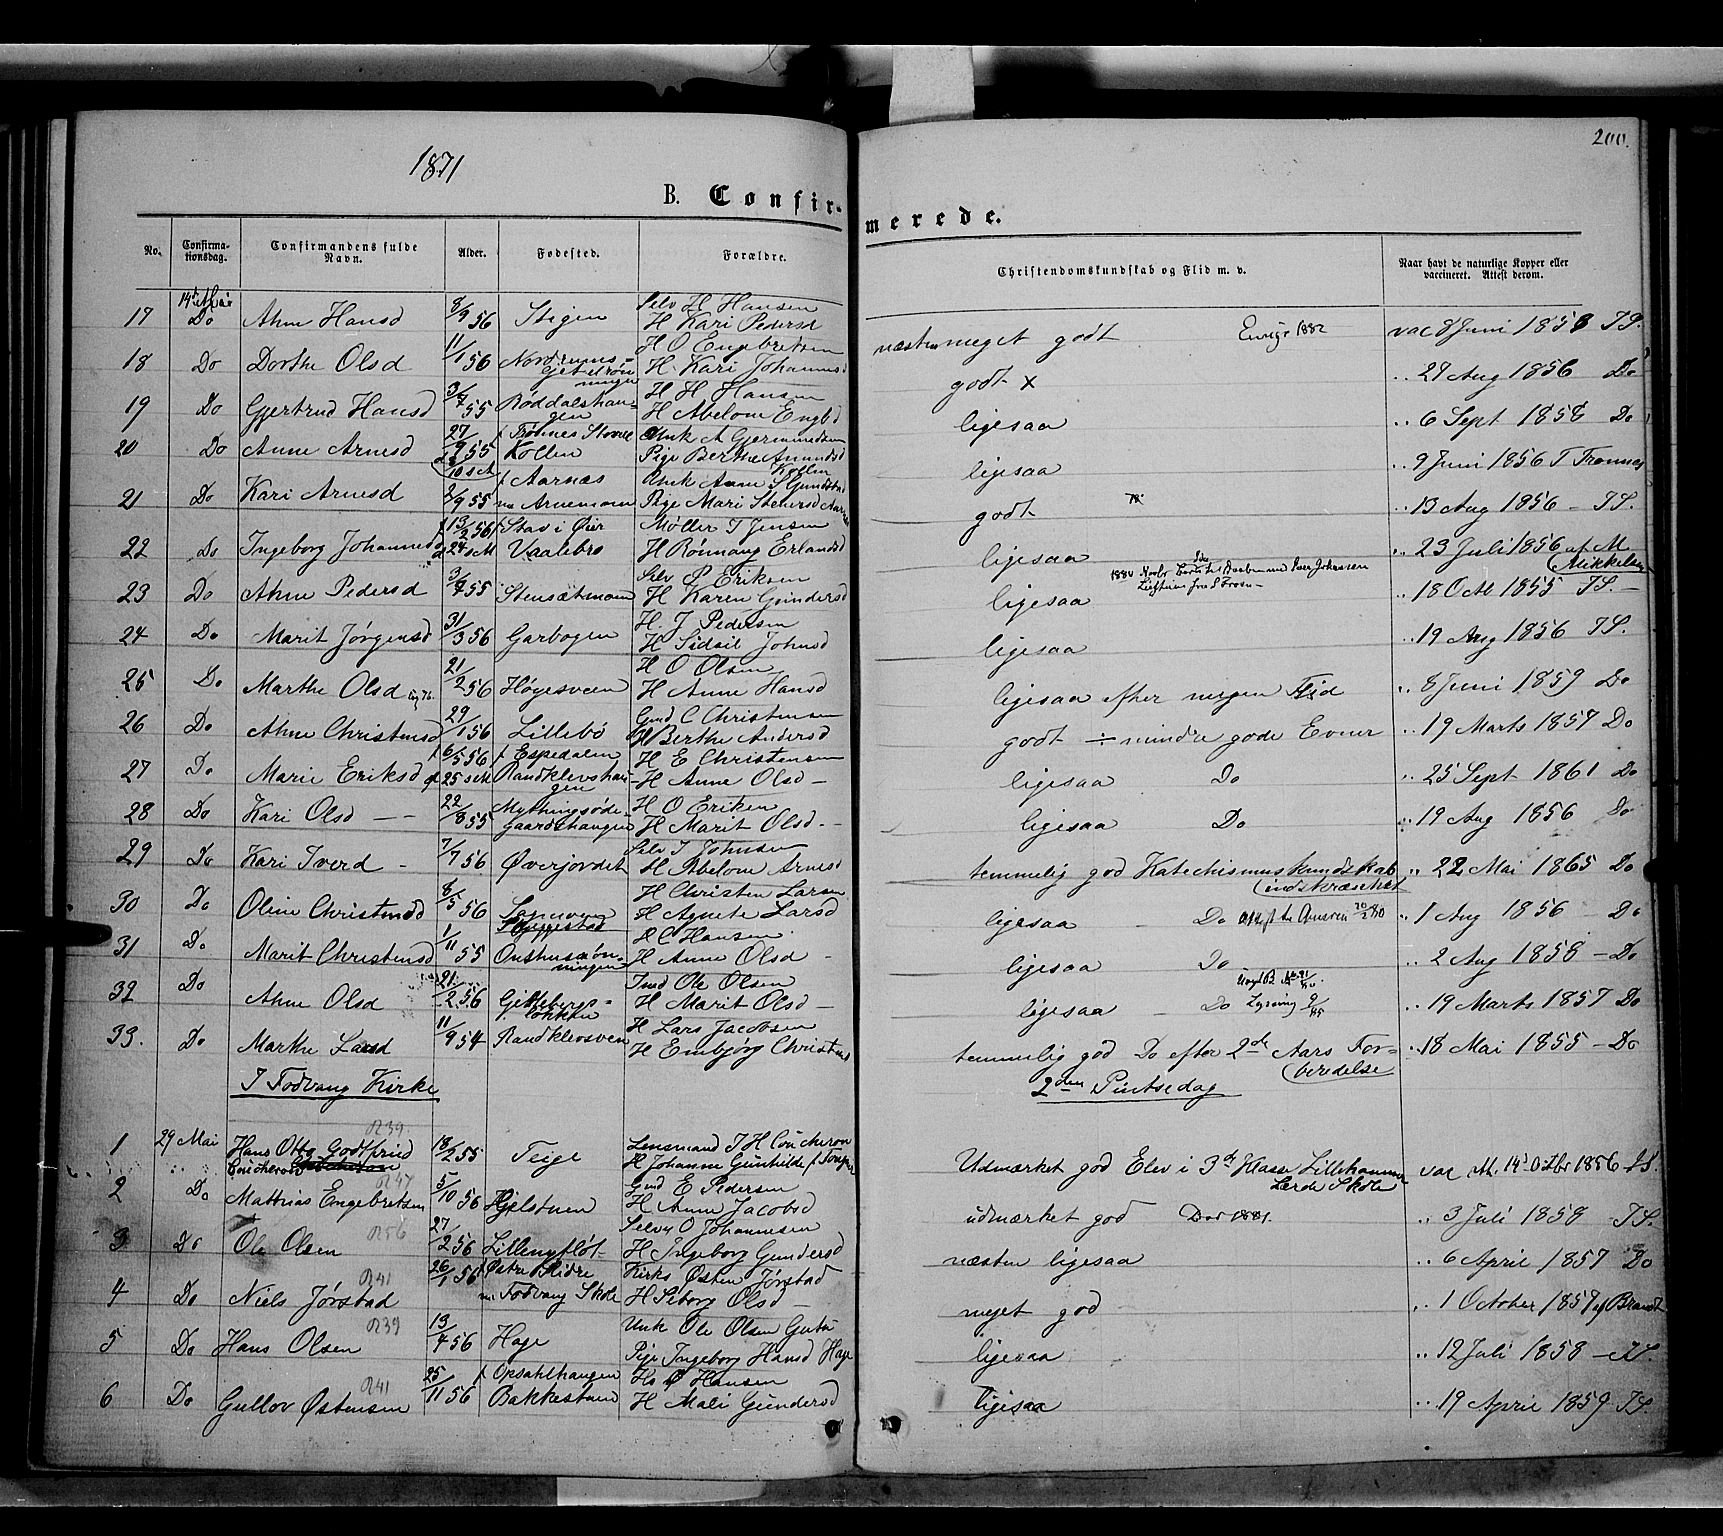 200.
1871
B. Confirmerede.
No. Confirmationsdag. Confirmandens fulde Navn. Alder. Fødested. Forældre. Christendomskundskab og Flid m. v. Naar havt de naturlige Kopper eller vaccineret. Attest derom.
14de Mai
17 Do Ahne Hansd 8/9 56 Stigen Selv H Hansen
H Kari Pedersd næsten meget godt 1882 vac 8 Juni 1858 TS.
18 Do Dorthe Olsd 11/1 56 H O Engebretsen
H. Kari Johannesd godt x .. 27 Aug 1856 Do
19 Do Gjertrud Hansd 3/7 55 H H Hansen
H Abelone Engbd ligesaa .. 6 Sept 1858 Do
20 Do Anne Arnesd 27/9 55 Kollen Unk A Gjermundsen
Pige Berthe Amundsd Kollen ligesaa .. 9 Juni 1856 T Tromnes
21 Do Kari Arnesd 2/9 55 f Aarnæs
Arnemoen Pige Mari godt .. 13 Aug 1856 - TS.
22 Do Ingeborg Johannesd f 13/2 56 f Stav i Øier
Vaalebro Møller T Jensen
H Rønnaug Erlandsd ligesaa .. 23 Juli 1856 af M Mikkelsen
23 Do Ahne Pedersd 3/7 55 Stensætmoen Selv P Eriksen
H Karen Gundersd ligesaa 1880 .. 18 Oct 1855 TS.
24 Do Marit Jørgensd 31/3 56 Garbogen H. J Pedersen
H Sidsil Johnsd ligesaa .. 19 Aug 1856 TS.
25 Do Marthe Olsd 21/2 56 Høgesveen H O Olsen
H Anne Hansd ligesaa efter megen Flid .. 8 Juni 1859 Do
26 Do Ahne Christensd 29/1 56 Lillebø Gmd C Christensen
H Berthe Andersd godt ÷ mindre gode Evner .. 19 Marts 1857 Do
27 Do Marie Eriksd f 6/5 56 f Espedalen
Randklevshaugen H E Christensen
H Anne Olsd - ligesaa Do .. 25 Sept 1861 Do
28 Do Kari Olsd 22/8 55 Mythingsødegaardshaugen H O Eriksen
H Marit Olsd - ligesaa Do .. 19 Aug 1856 Do
29 Do Kari Iverd - 7/7 56 Øverjordet Selv I Johnsen
H Abelone Arnesd temmelig god Katechismuskundskab indskrænket .. 22 Mai 1865 Do
30 Do Oline Christensd 8/5 56 H Christen Larsen
H Agnete Larsd ligesaa Do .. 1 Aug 1856 - Do
31 Do Marit Christensd 1/11 55 H C Hansen
H Anne Olsd - ligesaa Do .. 2 Aug 1858 - Do
32 Do Ahne Olsd 21/2 56 Gillebergsløkken Ole Olsen
H Marit Olsd - ligesaa Do .. 19 Marts 1857 Do
33. Do Marthe Larsd 11/9 54 Randklevsveen H Lars Jacobsen
H Embjørg Christensd temmelig god Do efter 2de Aars Forberedelse .. 18 Mai 1855 - Do
I Fodvang Kirke 2den Pintsedag
1 29 Mai Hans Otto Godtfried
Coucheron 18/2 55 Teige Lensmand J H Coucheron
H Johanne Gunhilde Udmærket god Elev i 3de Klasse Lillehammer Lærde Skole vac
14 Octbr 1856
2 Do Matthias Engebretsen R47 5/10 56 Hjelstuen Gmd E Pedersen
H Anne Jacobsd udmærket god Død 1881. .. 3 Juli 1858 - TS.
3 Do Ole Olsen R56 27/2 56 Lillenyfløt Selv O Johannesen
H Ingeborg Gundersd næsten ligesaa .. 6 April 1857 Do
4 Do Niels Jørstad R41 26/1 56 f Østre Slidre
Fodvang Skole Kirks Østen Jørstad
H Seborg Olsd - meget god .. 1 October 1857 af Brandt
5 Do Hans Olsen R39 13/4 56 Hage Unk Ole Olsen
Pige Ingeborg Hansd Hage ligesaa .. 12 Juli 1858 - TS.
6 Do Gullov Østensen R41 25/11 56 f Opsahlhaugen
Bakkestuen Ø Hansen
H Mali Gundersd ligesaa .. 19 April 1859 TS.